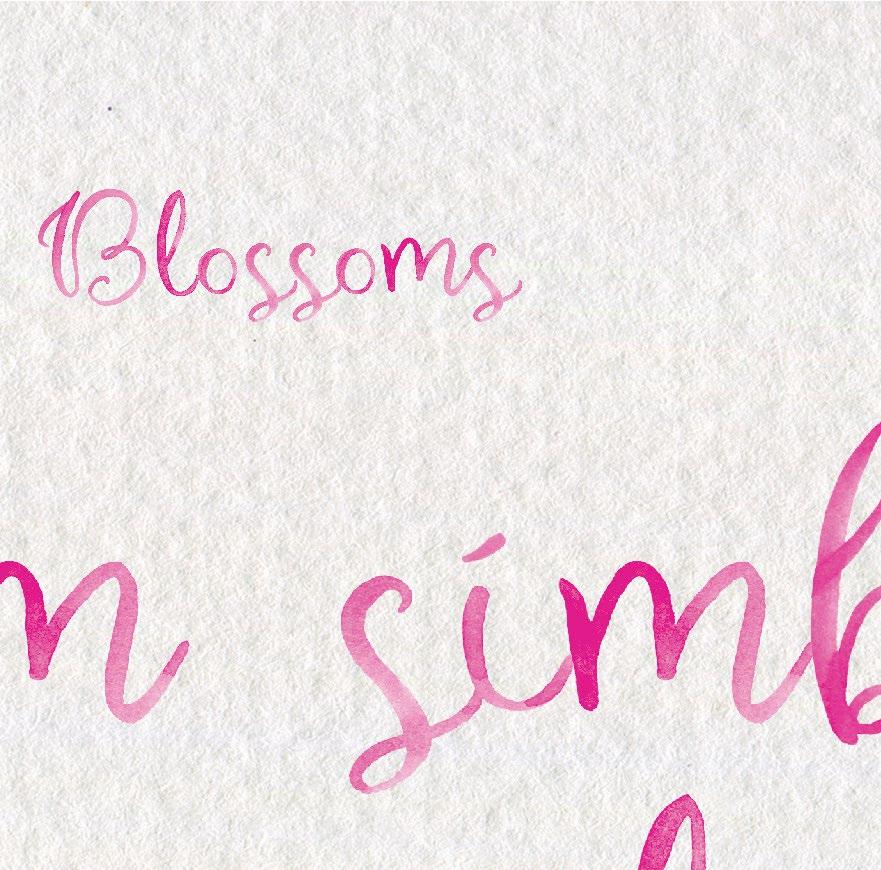 Blossoms
m símb